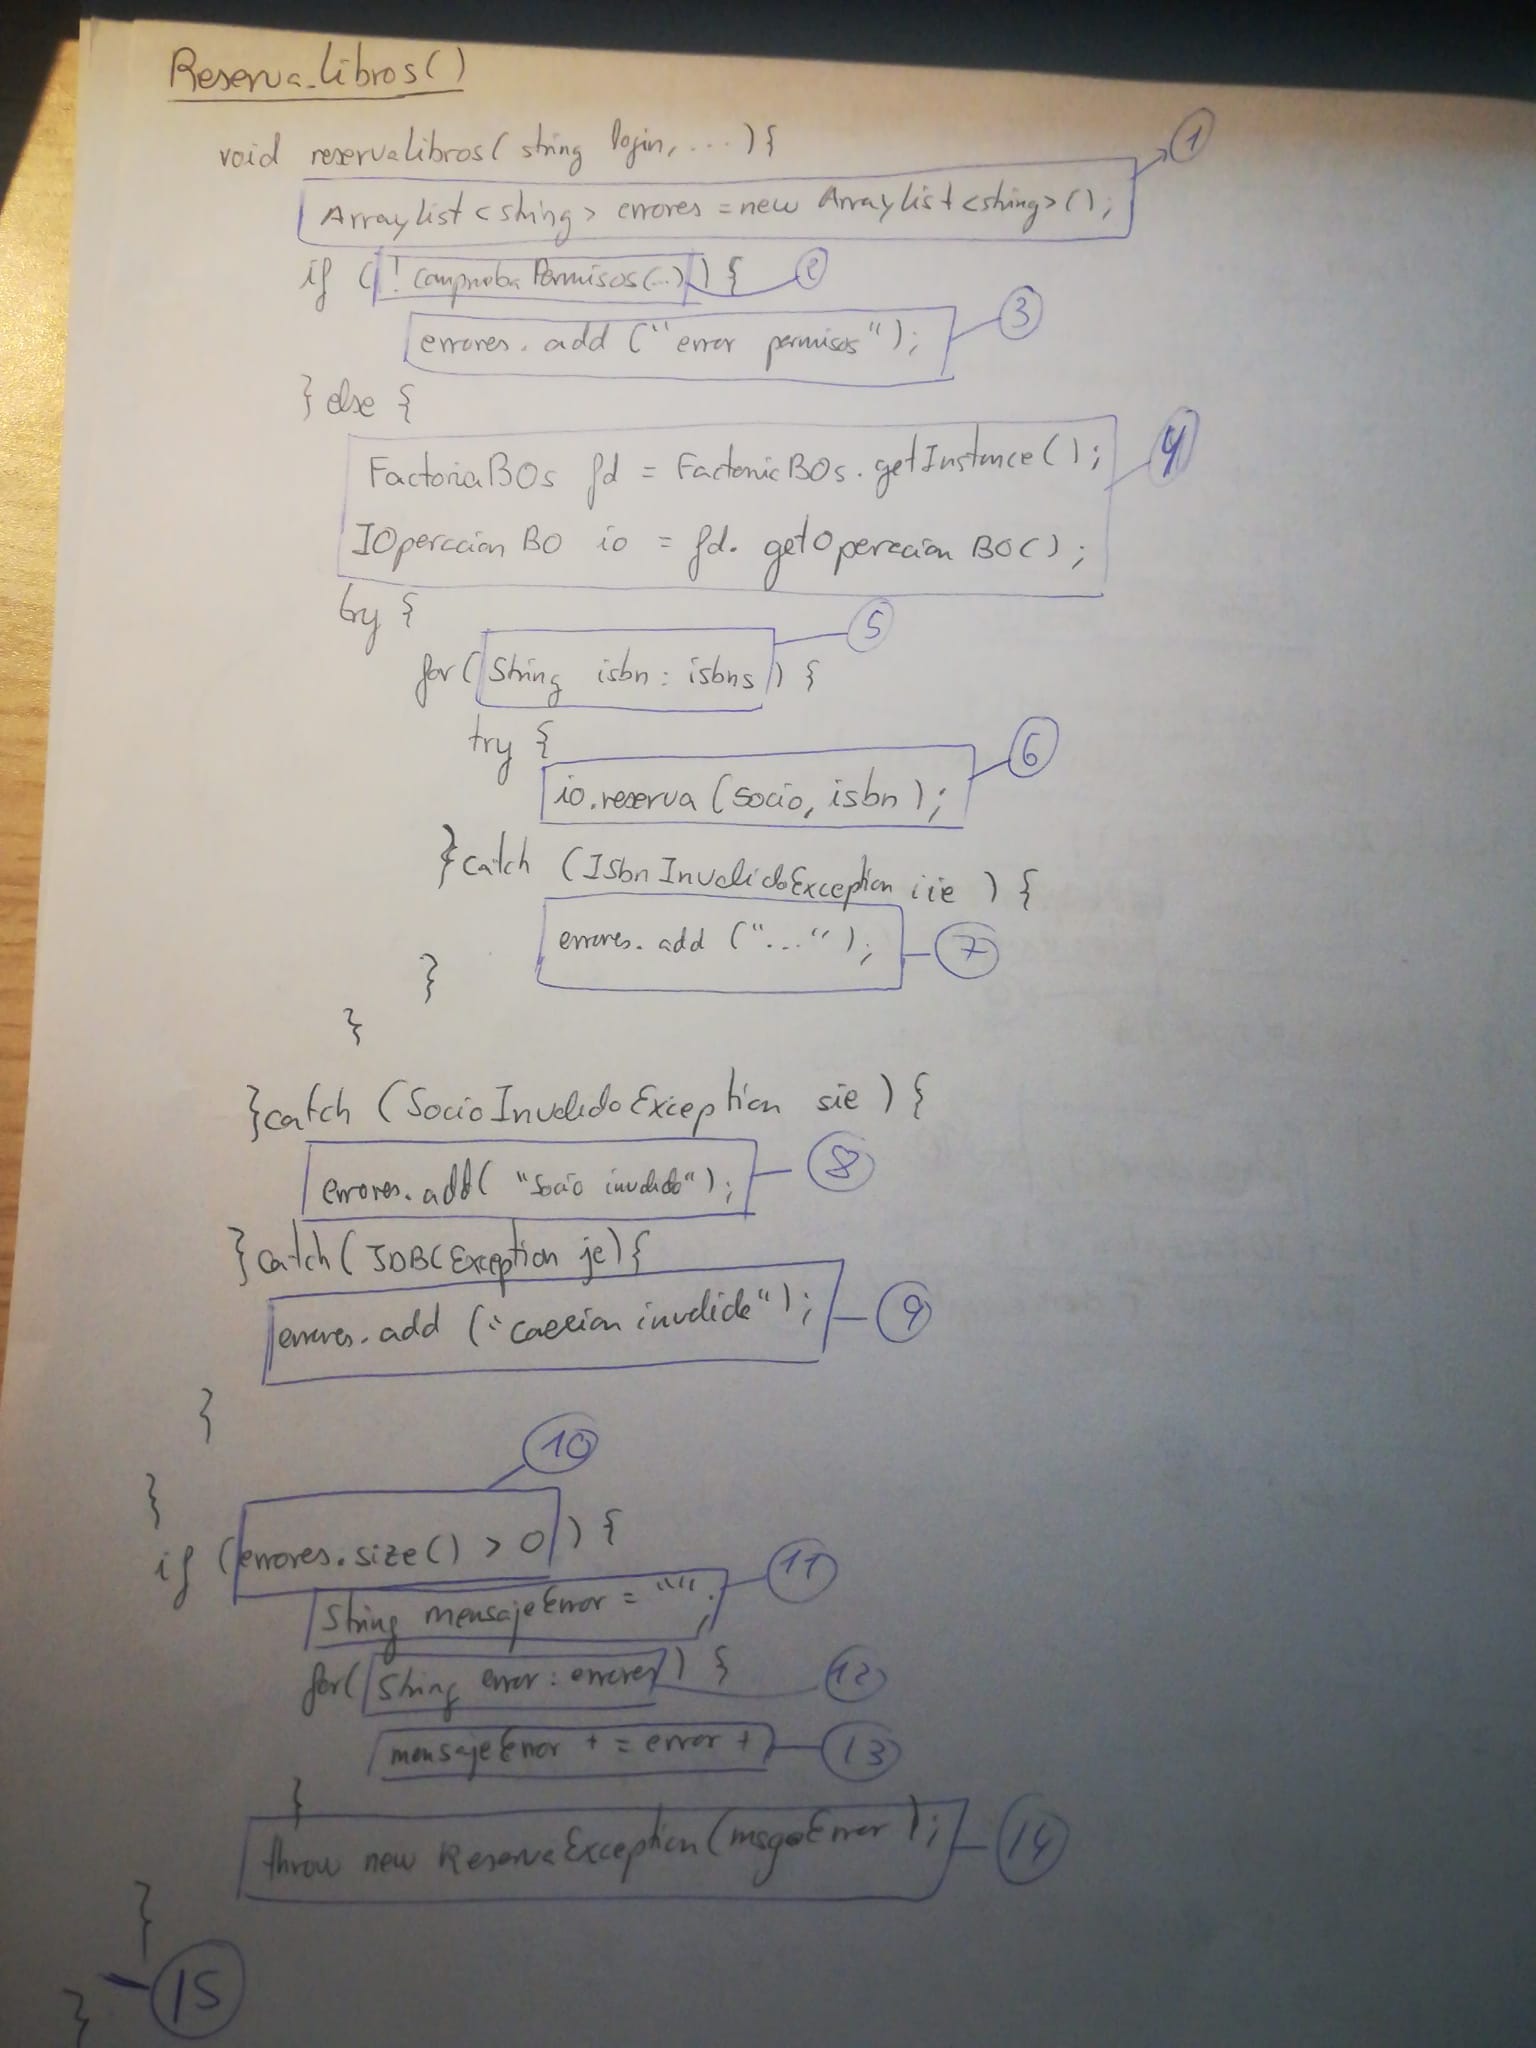 Reserva_libros()
void reservalibros( string login, ....){
1
ArrayList <string> errores = new ArrayList <string> ();
if ( ! comprueba Permisos(...) ) {
2
errores. add ("error permisos");
3
} else {
FactoriaBOs fd = FactoriaBOs. getInstance();
4
IOperacion BO io = fd. getOperacion BO();
try {
5
for( String isbn : isbns ) {
try {
6
io.reserva (socio, isbn);
} catch (ISbnInvalidoException iie ) {
errores. add ("...");
7
}
}
} catch (SocioInvalidoException sie ) {
errores. add( "Socio invalido");
8
} catch( JDBCException je){
errores. add (" invalida");
9
}
10
}
if (errores.size() > 0 ) {
11
String mensajeError = "";
for( String error : errores ) {
12
mensajeError += error +
13
}
throw new ReservaException( );
14
}
15
}